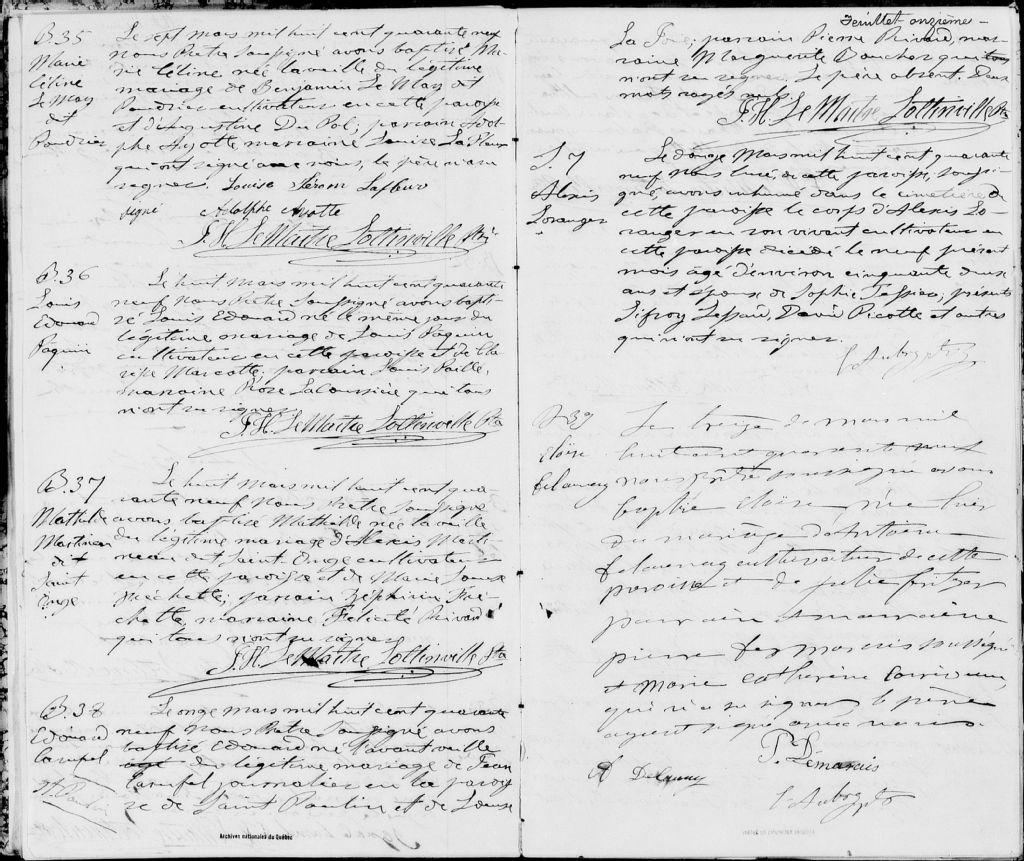 B.35
Marie
Céline
Le May
dit
Poudrier
Le sept mars mil huit cent quarante neuf
nous Prêtre soussigné avons baptisé Ma-
rie Céline née la veille du légitime
mariage de Benjamin Le May dit
Poudrier cultivateur en cette paroisse
et d'Augustine Du Pol; parrain Adol-
phe Ayotte marraine Louise La Fleur
qui ont signé avec nous, le père n'a su
signer. Louise Jérom Lafleur
signé Adolphe Ayotte
J. H. Le Maitre Lottinville Ptre
B.36
Louis
Edouard
Paquin
Le huit mars mil huit cent quarante
neuf nous Prêtre soussigné avons bapti-
sé Louis Edouard né le même jour du
légitime mariage de Louis Paquin
cultivateur en cette paroisse et de
Marcotte; parrain Louis Paillé,
marraine Rose qui tous
n'ont su signer
J. H. Le Maitre Lottinville Ptre
B.37
Mathilde
Martineau
dit
Saint
Onge
Le huit mars mil huit cent qua-
rante neuf nous Prêtre soussigné
avons baptisé Mathilde née la veille
du légitime mariage d'Alexis Marti-
neau dit Saint-Onge cultivateur
en cette paroisse et de Marie Louise
Michette; parrain Zéphirin Mi-
chette, marraine Félicité Rivard
qui tous n'ont su signer
J. H. Le Maitre Lottinville Ptre
B.38
Edouard
Carufel
St. Paulin
Le onze mars mil huit cent quarante
neuf nous Prêtre soussigné avons
baptisé Edouard né l'avant veille
du légitime mariage de Jean
Carufel journalier en la parois-
se de Saint Paulin et de Louise
Archives nationales du Québec
Feuillet onzième -
La Joie; parrain Pierre Rivard, mar-
raine Marguerite Boucher qui tous
n'ont su signer. Le père absent. Deux
mots rayés nuls.
J. H. Le Maitre Lottinville Ptre
S. 7
Alexis
Loranger
Le douze mars mil huit cent quarante
neuf nous curé de cette paroisse, soussi-
gné, avons inhumé dans le cimetière de
cette paroisse le corps d'Alexis Lo-
ranger en son vivant cultivateur en
cette paroisse décédé le neuf présent
mois âgé d'environ cinquante deux
ans et époux de Sophie Tessier, présents
Sifroy Lessard, David Picotte et autres
qui n'ont su signer.
L Aubry ptre
B 39
Eloïse
Delaunay
Le treize de mars mil
huit cent quarante neuf
nous prêtre soussigné avons
baptisé Eloïse née hier
du mariage d'Antoine
Delaunay cultivateur de cette
paroisse et de julie
parrain et marraine
pierre desmarais soussigné
et Marie Catherine
qui n'a su signer le père
ayant signé avec nous.
P. Démarais
A Delauny
L Aubry ptre